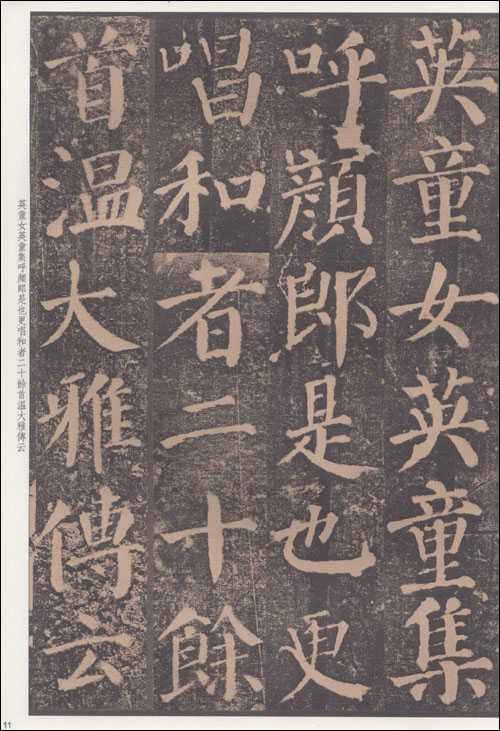 英童女英童集
呼顔郎是也更
唱和者二十餘
首温大雅傳云
英童女英童集呼顔郎是也更唱和者二十餘首温大雅傳云
11